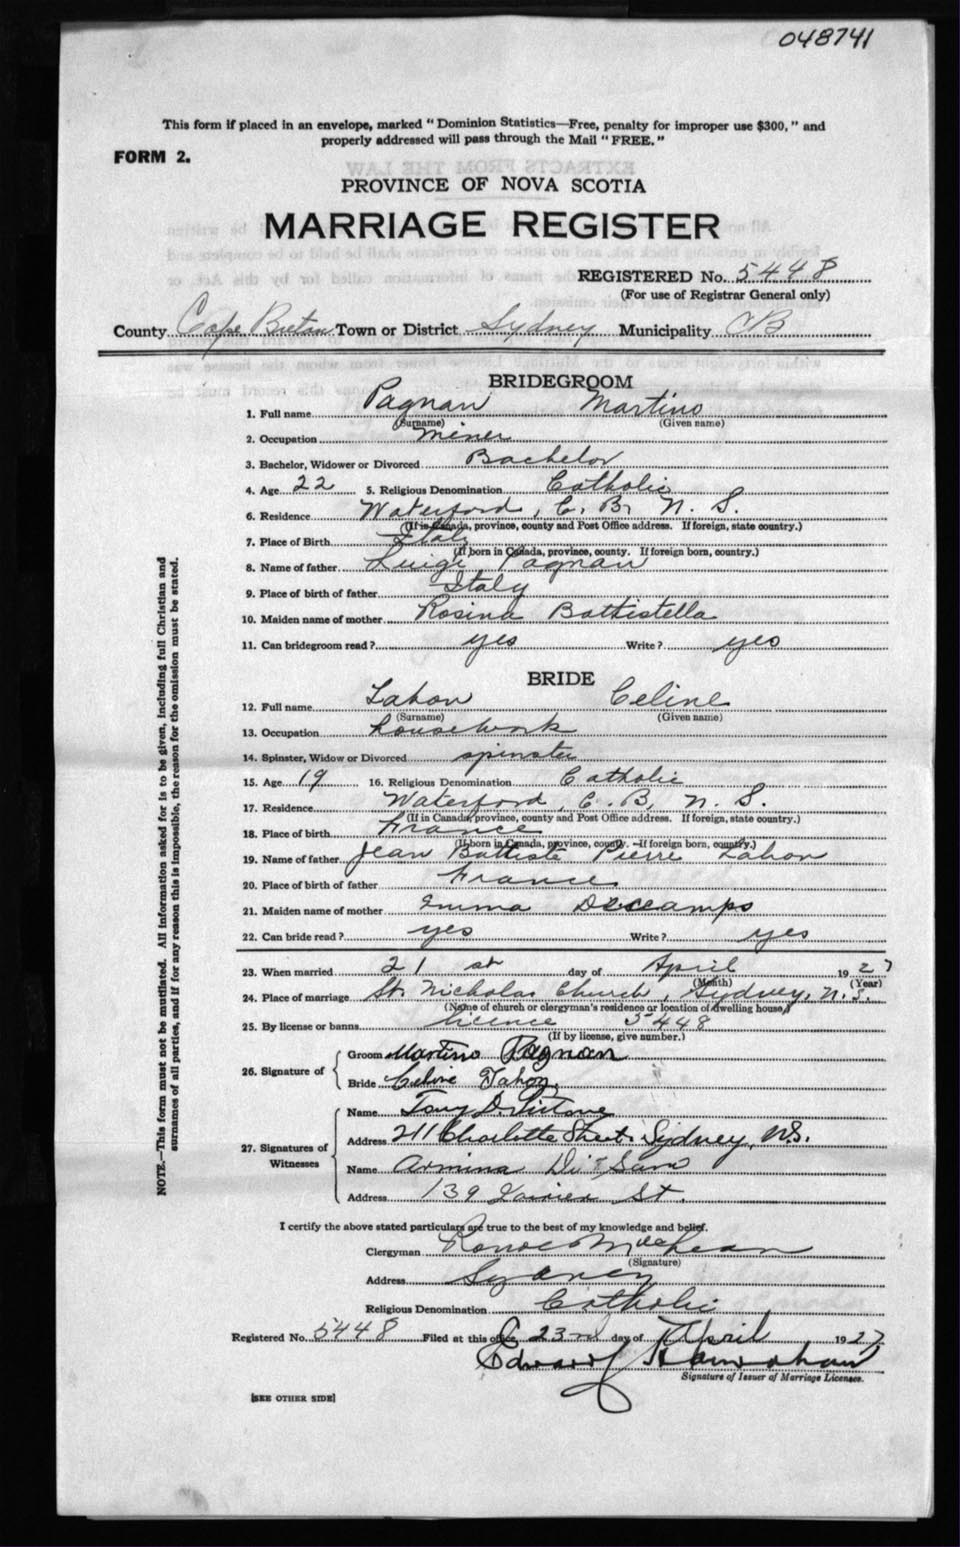 048741
This form if placed in an envelope, marked "Dominion Statistics—Free, penalty for improper use $300," and
properly addressed will pass through the Mail "FREE."
FORM 2.
PROVINCE OF NOVA SCOTIA
MARRIAGE REGISTER
REGISTERED No. 5448
(For use of Registrar General only)
County Cape Breton Town or District Sydney Municipality CB
BRIDEGROOM
1. Full name Pagnan Martino
(Surname) (Given name)
2. Occupation miner
3. Bachelor, Widower or Divorced Bachelor
4. Age 22 5. Religious Denomination Catholic
6. Residence Waterford, C. B. N. S.
(If in Canada, province, county and Post Office address. If foreign, state country.)
7. Place of Birth Italy
(If born in Canada, province, county. If foreign born, country.)
8. Name of father Luigi Pagnan
9. Place of birth of father Italy
10. Maiden name of mother Rosina Battistella
11. Can bridegroom read? yes Write? yes
BRIDE
12. Full name Tahon Celine
(Surname) (Given name)
13. Occupation housework
14. Spinster, Widow or Divorced spinster
15. Age 19 16. Religious Denomination Catholic
17. Residence Waterford, C. B, N. S.
(If in Canada, province, county and Post Office address. If foreign, state country.)
18. Place of birth France
(If born in Canada, province, county. —If foreign born, country.)
19. Name of father Jean Battiste Pierre Tahon
20. Place of birth of father France
21. Maiden name of mother Emma Descamps
22. Can bride read? yes Write? yes
23. When married 21 st day of April 1927
(Month) (Year)
24. Place of marriage St. Nicholas Church, Sydney, N. S.
(Name of church or clergyman's residence or location of dwelling house)
25. By license or banns licence 5448
(If by license, give number.)
26. Signature of
Groom Martino Pagnan
Bride Celine Tahon
27. Signatures of Witnesses
Name Tony
Address 211 Charlotte Street. Sydney, N.S.
Name Armina
Address 139 St.
I certify the above stated particulars are true to the best of my knowledge and belief.
Clergyman
(Signature)
Address Sydney
Religious Denomination Catholic
Registered No. 5448 Filed at this office 23rd day of April 1927
Edward
Signature of Issuer of Marriage Licenses.
[SEE OTHER SIDE]
NOTE.—This form must not be mutilated. All information asked for is to be given, including full Christian and
surnames of all parties, and if for any reason this is impossible, the reason for the omission must be stated.